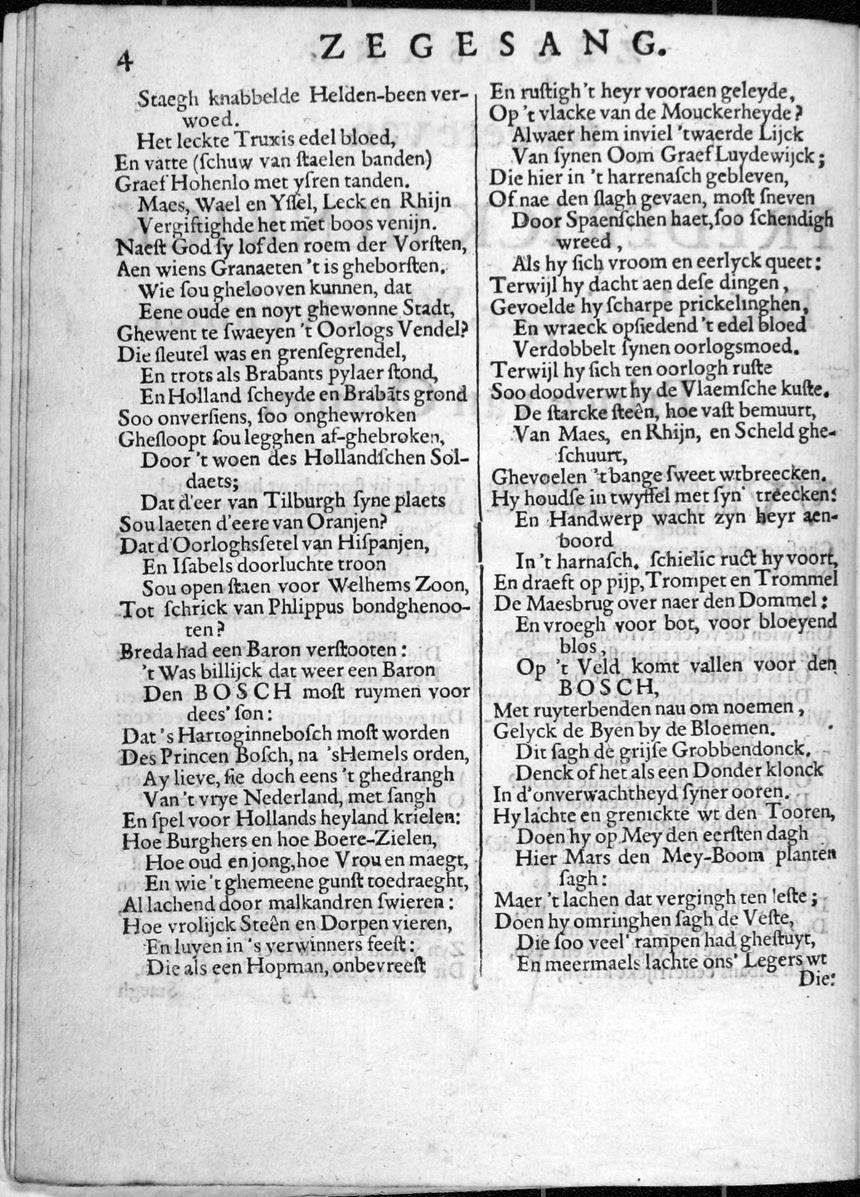 4
ZEGESANG.
Staegh knabbelde Helden-been ver-
woed.
Het leckte Truxis edel bloed,
En vatte (ſchuw van ſtaelen banden)
Graef Hohenlo met yſren tanden.
Maes, Wael en Yſſel, Leck en Rhijn
Vergiftighde het met boos venijn.
Naeſt God ſy lof den roem der Vorſten,
Aen wiens Granaeten 't is gheborſten.
Wie ſou ghelooven kunnen, dat
Eene oude en noyt ghewonne Stadt,
Ghewent te ſwaeyen 't Oorlogs Vendel?
Die ſleutel was en grenſegrendel,
En trots als Brabants pylaer ſtond,
En Holland ſcheyde en Brabãts grond
Soo onverſiens, ſoo onghewroken
Gheſloopt ſou legghen af-ghebroken,
Door 't woen des Hollandſchen Sol-
daets;
Dat d'eer van Tilburgh ſyne plaets
Sou laeten d'eere van Oranjen?
Dat d'Oorloghsſetel van Hiſpanjen,
En Iſabels doorluchte troon
Sou open ſtaen voor Welhems Zoon,
Tot ſchrick van Phlippus bondghenoo-
ten?
Breda had een Baron verſtooten:
't Was billijck dat weer een Baron
Den BOSCH moſt ruymen voor
dees' ſon:
Dat 's Hartoginneboſch moſt worden
Des Princen Boſch, na 'sHemels orden,
Ay lieve, ſie doch eens 't ghedrangh
Van 't vrye Nederland, met ſangh
En ſpel voor Hollands heyland krielen:
Hoe Burghers en hoe Boere-Zielen,
Hoe oud en jong, hoe Vrou en maegt,
En wie 't ghemeene gunſt toedraeght,
Al lachend door malkandren ſwieren:
Hoe vrolijck Steên en Dorpen vieren,
En luyen in 's verwinners feeſt:
Die als een Hopman, onbevreeſt
En ruſtigh 't heyr vooraen geleyde,
Op 't vlacke van de Mouckerheyde?
Alwaer hem inviel 'twaerde Lijck
Van ſynen Oom Graef Luydewijck;
Die hier in 't harrenaſch gebleven,
Of nae den ſlagh gevaen, moſt ſneven
Door Spaenſchen haet, ſoo ſchendigh
wreed,
Als hy ſich vroom en eerlyck queet:
Terwijl hy dacht aen deſe dingen,
Gevoelde hy ſcharpe prickelinghen,
En wraeck opſiedend 't edel bloed
Verdobbelt ſynen oorlogsmoed.
Terwijl hy ſich ten oorlogh ruſte
Soo doodverwt hy de Vlaemſche kuſte.
De ſtarcke ſteên, hoe vaſt bemuurt,
Van Maes, en Rhijn, en Scheld ghe-
ſchuurt,
Ghevoelen 't bange ſweet wtbreecken.
Hy houdſe in twyffel met ſyn' treecken:
En Handwerp wacht zyn heyr aen-
boord
In 't harnaſch. ſchielic ruct hy voort,
En draeft op pijp, Trompet en Trommel
De Maesbrug over naer den Dommel:
En vroegh voor bot, voor bloeyend
blos,
Op 't Veld komt vallen voor den
BOSCH,
Met ruyterbenden nau om noemen,
Gelyck de Byen by de Bloemen.
Dit ſagh de grijſe Grobbendonck.
Denck of het als een Donder klonck
In d'onverwachtheyd ſyner ooren.
Hy lachte en grenickte wt den Tooren,
Doen hy op Mey den eerſten dagh
Hier Mars den Mey-Boom planten
ſagh:
Maer 't lachen dat vergingh ten leſte;
Doen hy omringhen ſagh de Veſte,
Die ſoo veel' rampen had gheſtuyt,
En meermaels lachte ons' Legers wt
Die: